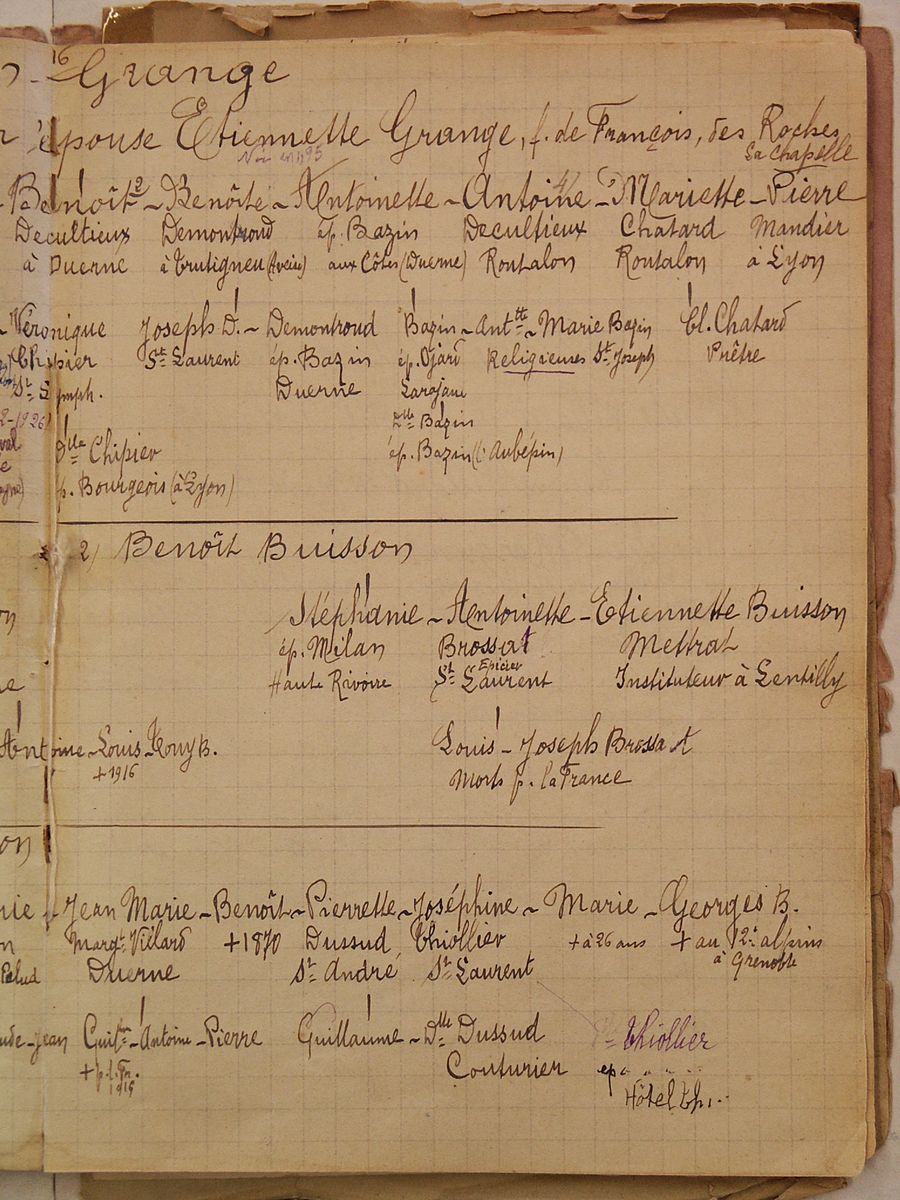 16 Grange
épouse Etiennette Grange, f. de François, des Roches
La Chapelle
Benoît 2 - Benôite - Antoinette - Antoine - Mariette - Pierre
Decultieux Demontroud ép. Bazin Decultieux Chatard Mandier
à Duerne à aux Côtes (Duerne) Rontalon Rontalon à Lyon
- Véronique Joseph D. - Demontroud Bazin - Anttte - Marie Bazin Cl. Chatard
Chipier St Laurent ép. Bazin ép. Ojard Religieuses St Joseph Prêtre
St Symph. Duerne Larajasse
2-1926 Dlle Bazin
Dlle Chipier ép. Bazin (l'Aubépin)
ép. Bourgeois (à Lyon)
2) Benoît Buisson
Stéphanie - Antoinette - Etiennette Buisson
ép. Milan Brossat Mettrat
Epicier
Haute Rivoire St Laurent Instituteur à Lentilly
Antoine - Louis - Tony B. Louis - Joseph Brossat
+ 1916 Morts p. la France
Jean Marie - Benoît - Pierrette - Joséphine - Marie - Georges B.
Margt Villard + 1870 Dussud Thiollier + à 26 ans + au 12e alpins
Duerne St André St Laurent à Grenoble
Jean Antoine - Pierre Guillaume - Dlle Dussud Thiollier
+ p. l. Fr. Couturier ep
Hôtel Th.